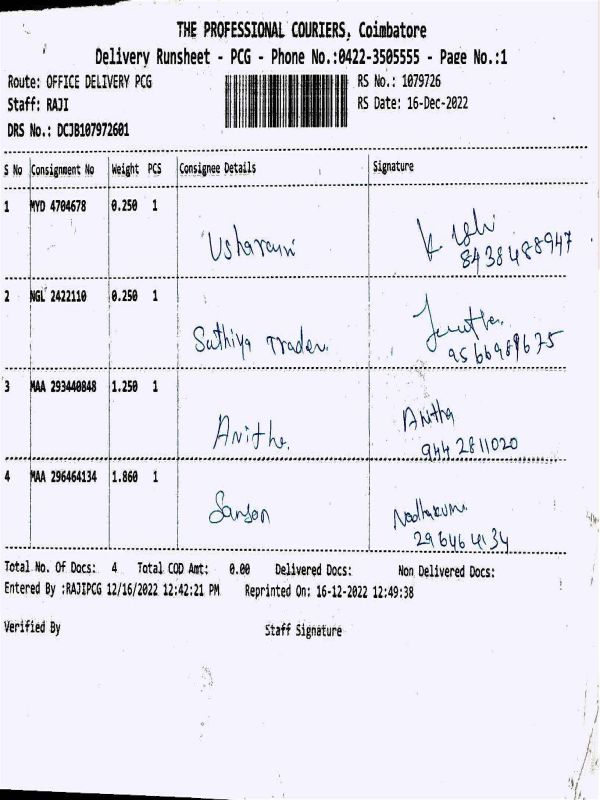 THE PROFESSIONAL COURIERS, Coimbatore
Delivery Runsheet - PCG - Phone No.:0422-3505555 - Page No.:1
Route: OFFICE DELIVERY PCG RS No.: 1079726
Staff: RAJI RS Date: 16-Dec-2022
DRS No.: DCJB107972601
S No Consignment No Weight PCS Consignee Details Signature
1 MYD 4704678 0.250 1
Usharani
8438488947
2 NGL 2422110 0.250 1
Sathiya Traders
9566989675
3 MAA 293440848 1.250 1
Anitha Anitha
944 2811020
4 MAA 296464134 1.860 1
Sanson
296464134
Total No. Of Docs: 4 Total COD Amt: 0.00 Delivered Docs: Non Delivered Docs:
Entered By :RAJIPCG 12/16/2022 12:42:21 PM Reprinted On: 16-12-2022 12:49:38
Verified By Staff Signature